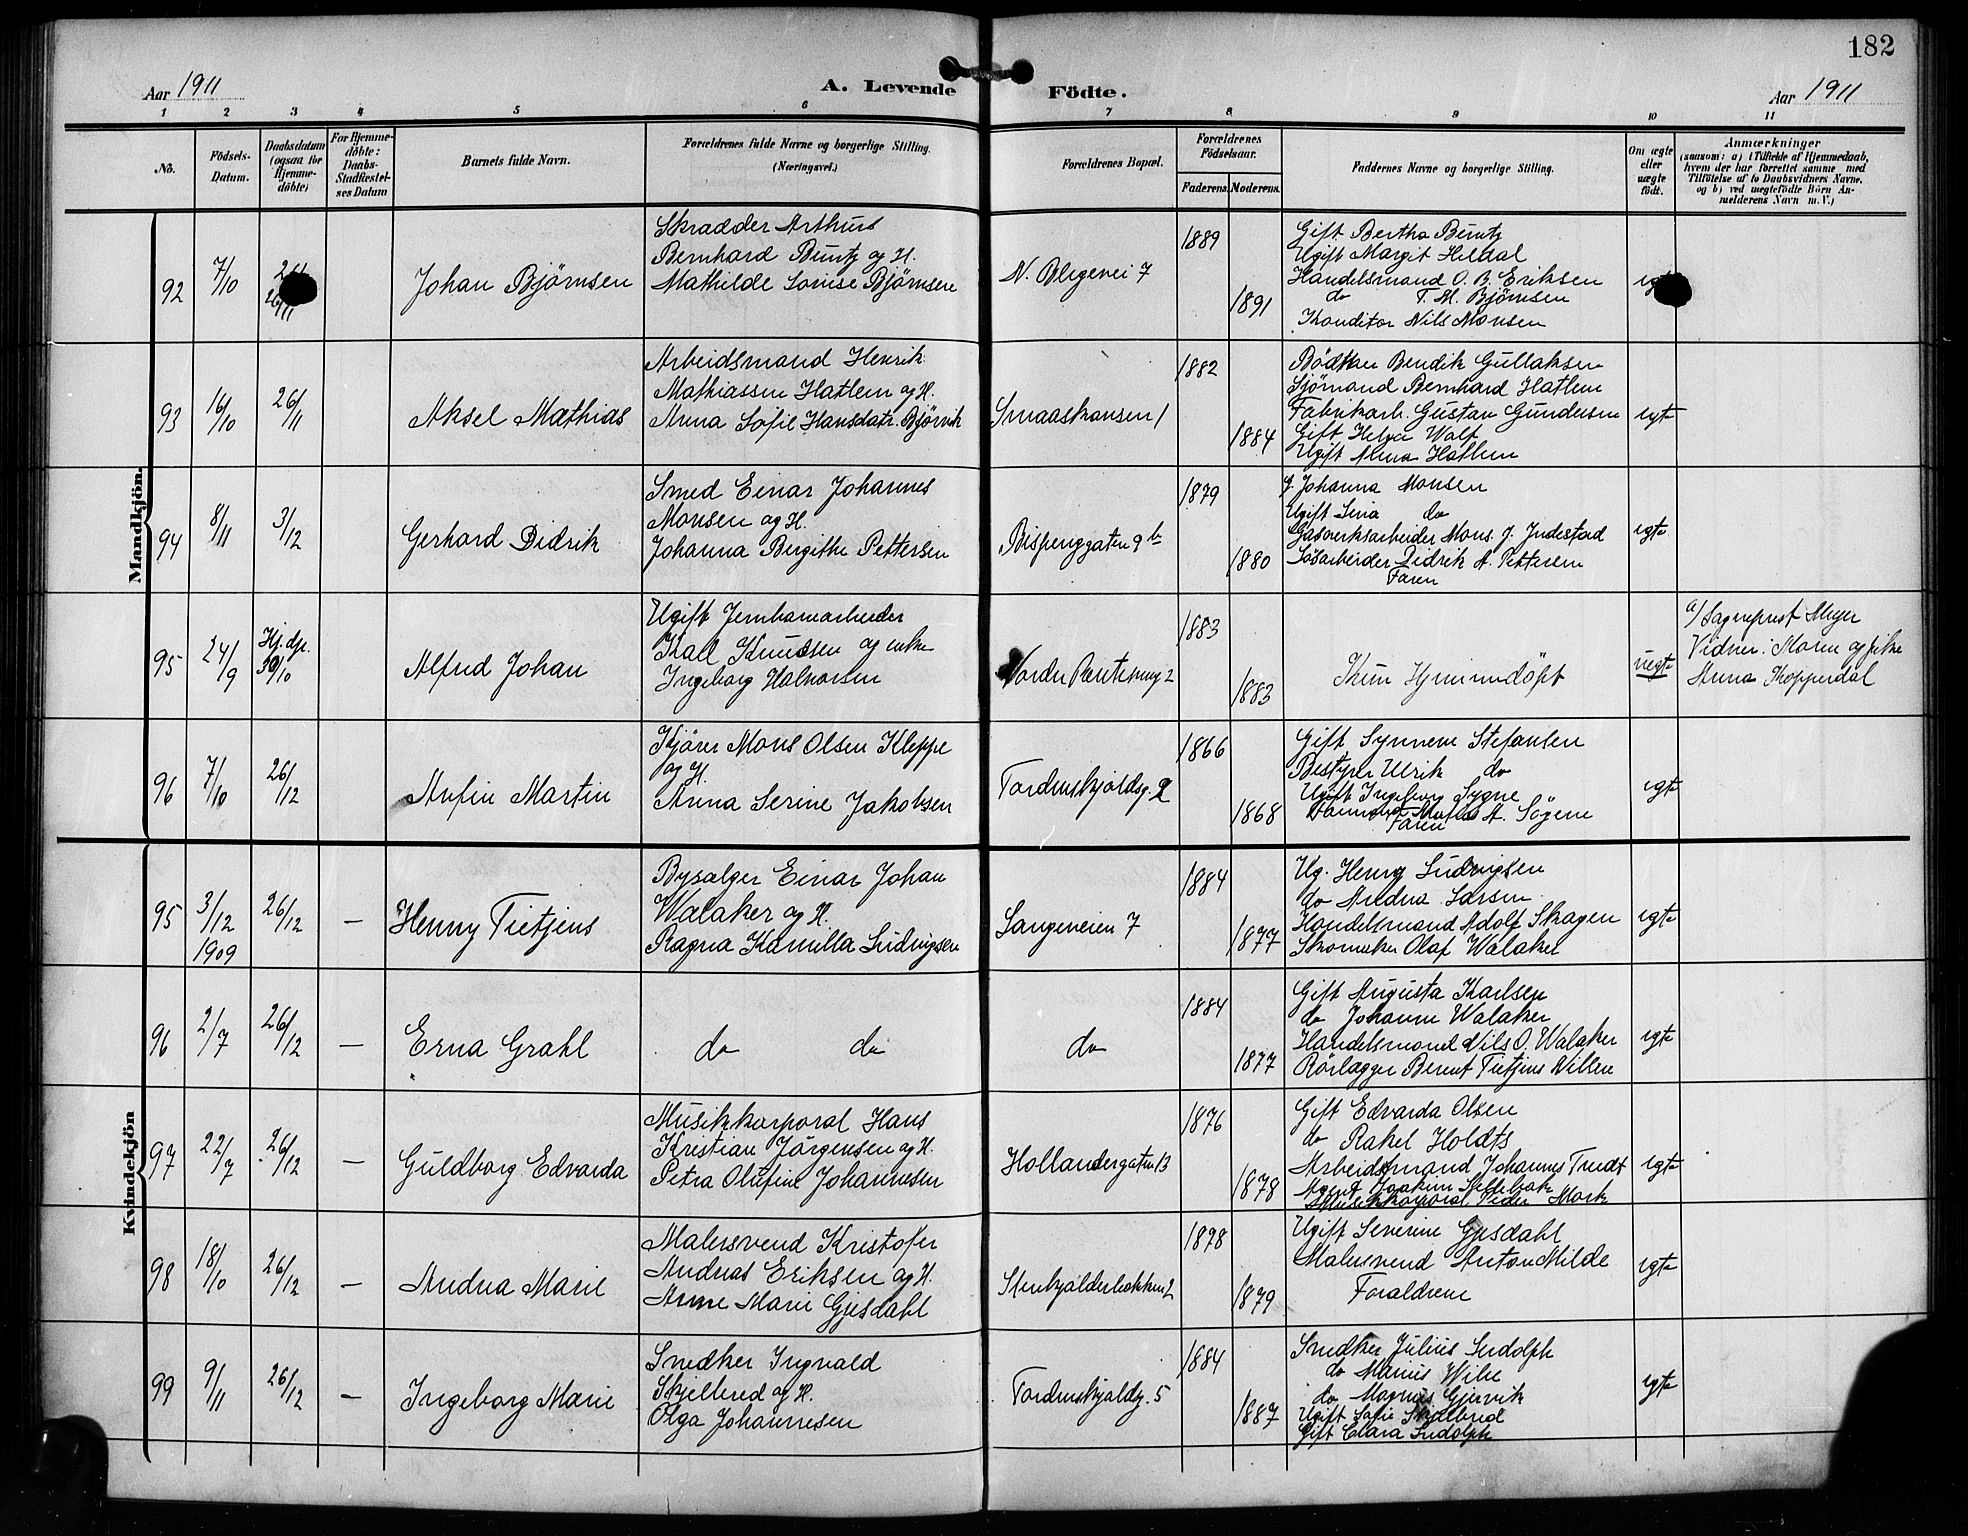 182
Aar 1911
A. Levende Födte.
Aar 1911
1 2 3 4 5 6 7 8 9 10 11
No.
Födsels-Datum.
Daabsdatum (ogsaa for Hjemme-döbte)
For Hjemme-döbte: Daabs-Stadfæstel-ses Datum
Barnets fulde Navn.
Forældrenes fulde Navne og borgerlige Stilling. (Næringsvei.)
Forældrenes Bopæl.
Forældrenes Födselsaar.
Faderens.
Moderens.
Faddernes Navne og borgerlige Stilling.
Om ægte eller uægte födt.
Anmærkninger
(saasom: a) i Tilfælde af Hjemmedaab,
hvem der har forrettet samme med
Tilföielse af to Daabsvidners Navne.
og b) ved uægtefödte Börn An-
melderens Navn m. V.)
Mandkjön.
92 7/10 26/11
Johan Bjørnsen
Skradder Arthur
Bernhard Buntz og H.
Mathilde Louise Bjørnsen
N. Blegevei 7
1889
1891
Gift Bertha Buntz
Ugift Margit Heldal
Handelsmand O. B. Eriksen
do T. M. Bjørnsen
Konditor Nils Monsen
93 16/10 26/11
Aksel Mathias
Arbeidsmand Henrik
Mathiassen Hatlem og H.
Anna Sofie Hansdatr. Bjørvik
Smaaskansen 1
1882
1884
Bödker Bendik Gullaksen
Sjömand Bernhard Hatlem
Fabrikarb. Gustav Gundersen
Gift Helga Wolf
Ugift Alma Hatlem
egte
94 8/11 3/12
Gerhard Didrik
Smed Einar Johannes
Monsen og H.
Johanna Birgithe Pettersen
Bispenggaten 9 b
1879
1880
g. Johanna Monsen
Ugift Lina do
Gasverksarbeider Mons J. Indestad
Løsarbeider Didrik A. Pettersen
Faren
egte
95 24/9 Hj. dp. 30/10
Alfred Johan
Ugift Jernbanearbeider
Karl Knudsen og enke
Ingeborg Halvorsen
1883
1883
Kun Hjemmedöpt
uegte
a/ Sogneprest Meyer
Vidner: Moren og frk
Anna Kopperdal
96 7/10 26/12
Anfin Martin
Kjörer Mons Olsen Kleppe
og H.
Anna Serine Jakobsen
Tordenskjoldsg. 2
1866
1868
Gift Synneve Stefansen
Bestyrer Ulrik do
Ugift Ingeborg Sygne
A. Søgene
Faren
egte
Kvindekjön
95 3/12 1909 26/12 —
Henny Tietjens
Bysælger Einar Johan
Walaker og H.
Ragna Kamilla Ludvigsen
Langeveien 7
1884
1877
Ug. Henny Ludvigsen
do Andrea Larsen
Handelsmand Adolf Skagen
Skomaker Olaf Walaker
egte
96 2/7 26/12 —
Erna Grahl
do do
do
1884
1877
Gift Augusta Karlsen
do Johanne Walaker
Handelsmand Nils O. Walaker
Rörlægger Berent Tietjens Nilsen
egte
97 22/7 26/12 —
Guldborg Edvarda
Musikkorporal Hans
Kristian Jörgensen og H.
Petra Olufine Johannesen
Hollendergaten 13
1876
1878
Gift Edvarda Olsen
do Rakel Holdts
Arbeidsmand Johannes Tredt
Agent Joakim
Musikkorporal Peder Mork
egte
98 18/10 26/12 —
Andrea Marie
Malersvend Kristofer
Andreas Eriksen og H.
Anne Marie Gjesdahl
Stenkjælderbakken 2
1878
1879
Ugift Severine Gjesdahl
Malersvend Anton Milde
Forældrene
egte
99 9/11 26/12 —
Ingeborg Marie
Snedker Ingvald
Skjelbred og H.
Olga Johannesen
Tordenskjoldsg. 5
1884
1887
Snedker Julius Ludolph
do Marius Wibe
do Magnus Gjervik
Ugift Sofie Skjelbred
Gift Clara Ludolph
egte